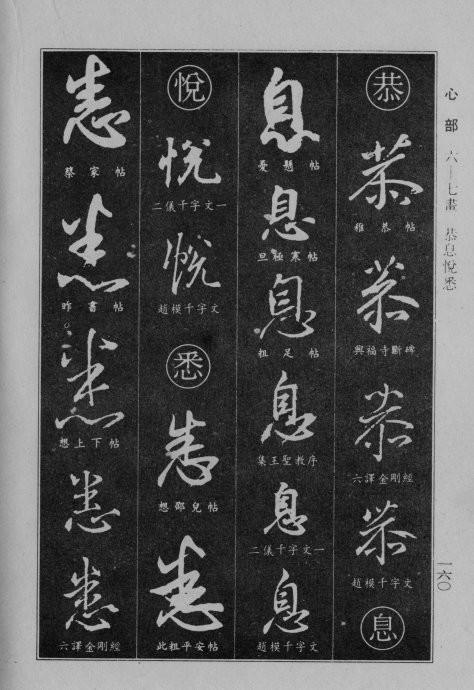 心部 六—七畫 恭息悅悉
一六〇
恭
恭
雅恭帖
恭
興福寺斷碑
恭
六譯金剛經
恭
趙模千字文
息
息
憂懸帖
息
旦極寒帖
息
粗足帖
息
集王聖教序
息
二儀千字文一
息
趙模千字文
悅
悅
二儀千字文一
悅
趙模千字文
悉
悉
想鄧兒帖
悉
此粗平安帖
悉
蔡家帖
悉
昨書帖
悉
想上下帖
悉
悉
六譯金剛經